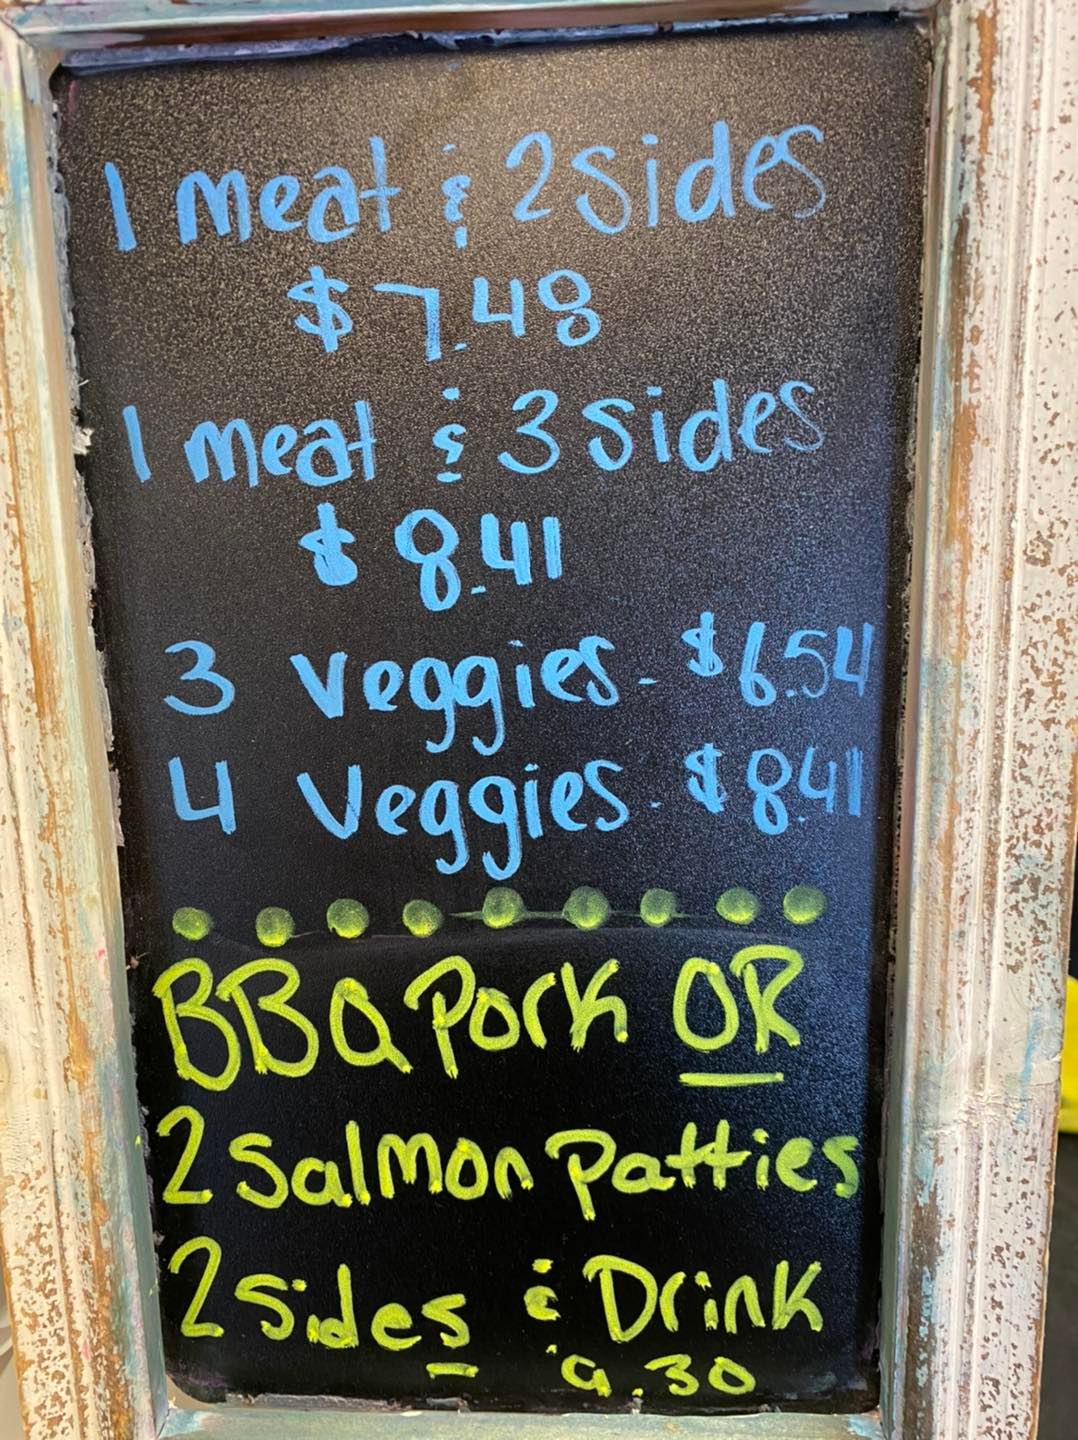 1 meat & 2 sides
$7.48
1 meat & 3 sides
$8.41
3 Veggies - $6.54
4 Veggies - $8.41
BBQ Pork OR
2 Salmon Patties
2 Sides & Drink
9.30